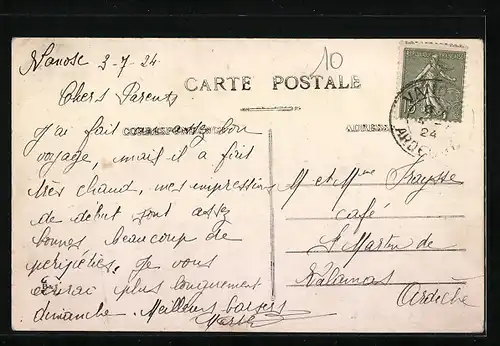 Vanosc 3-7-24
10
CARTE POSTALE
Chers Parents
CORRESPONDANCE
ADRESSE
J'ai fait un assez bon
voyage, mais il a fait
très chaud, mes impressions
de début sont assez
bonnes beaucoup de
péripéties. Je vous
écrirai plus longuement
dimanche. Meilleurs baisers
M et Mme Fraysse
café
St Martin de
Valamas
Ardèche
VANOSC
24